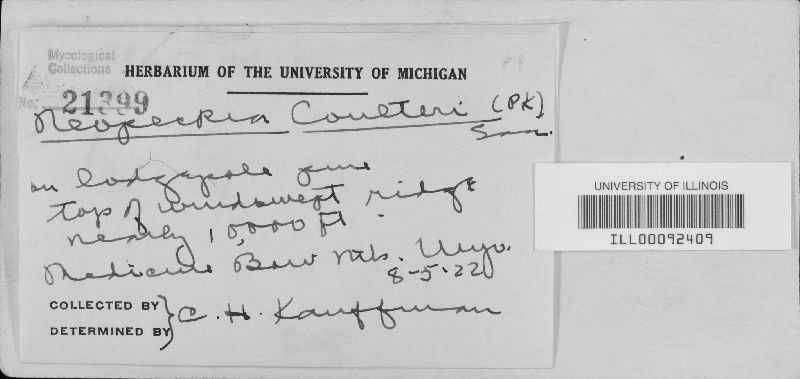 Mycological
Collections
HERBARIUM OF THE UNIVERSITY OF MICHIGAN
No. 21399
Neopeckia Coulteri (Pk)
Sacc.
on lodgepole pine
top of windswept ridge
nearly 10,000 ft.
Medicine Bow Mts. Wyo.
8-5-22
COLLECTED BY
DETERMINED BY
C. H. Kauffman
UNIVERSITY OF ILLINOIS
ILL00092409